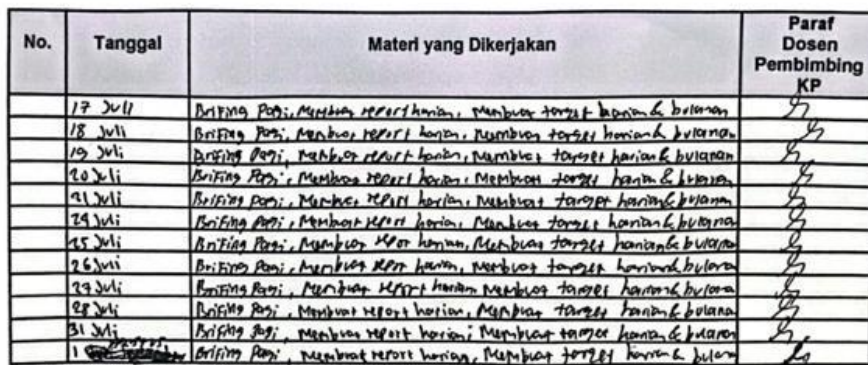 No. Tanggal Materi yang Dikerjakan Paraf Dosen Pembimbing KP
17 Juli Brifing Pagi, Membuat report harian, Membuat target harian & bulanan
18 Juli Brifing Pagi, Membuat report harian, Membuat target harian & bulanan
19 Juli Brifing Pagi, Membuat report harian, Membuat target harian & bulanan
20 Juli Brifing Pagi, Membuat report harian, Membuat target harian & bulanan
21 Juli Brifing Pagi, Membuat report harian, Membuat target harian & bulanan
24 Juli Brifing Pagi, Membuat report harian, Membuat target harian & bulanan
25 Juli Brifing Pagi, Membuat report harian, Membuat target harian & bulana
26 Juli Brifing Pagi, Membuat report harian, Membuat target harian & bulana
27 Juli Brifing Pagi, Membuat report harian, Membuat target harian & bulana
28 Juli Brifing Pagi, Membuat report harian, Membuat target harian & bulana
31 Juli Brifing Pagi, Membuat report harian, Membuat target harian & bulanan
1 Brifing Pagi, Membuat report harian, Membuat target harian & bulan